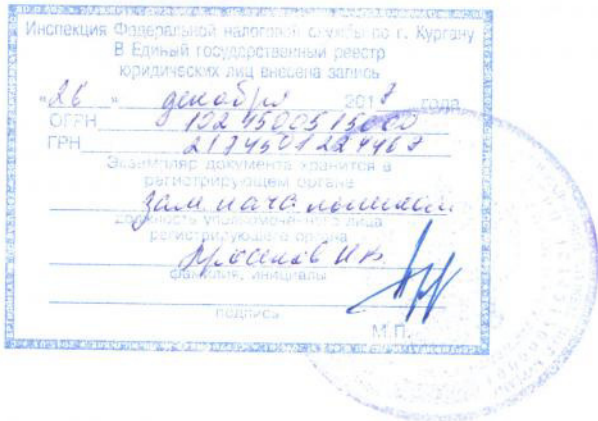 Инспекция Федеральной налоговой службы по г. Кургану
В Единый государственный реестр
юридических лиц внесена запись
"26" декабря 2017 года
ОГРН 1024500515000
ГРН 2174501224467
Экземпляр документа хранится в
регистрирующем органе
зам начальника
должность уполномоченного лица
регистрирующего органа
фамилия, инициалы
подпись
М.П.